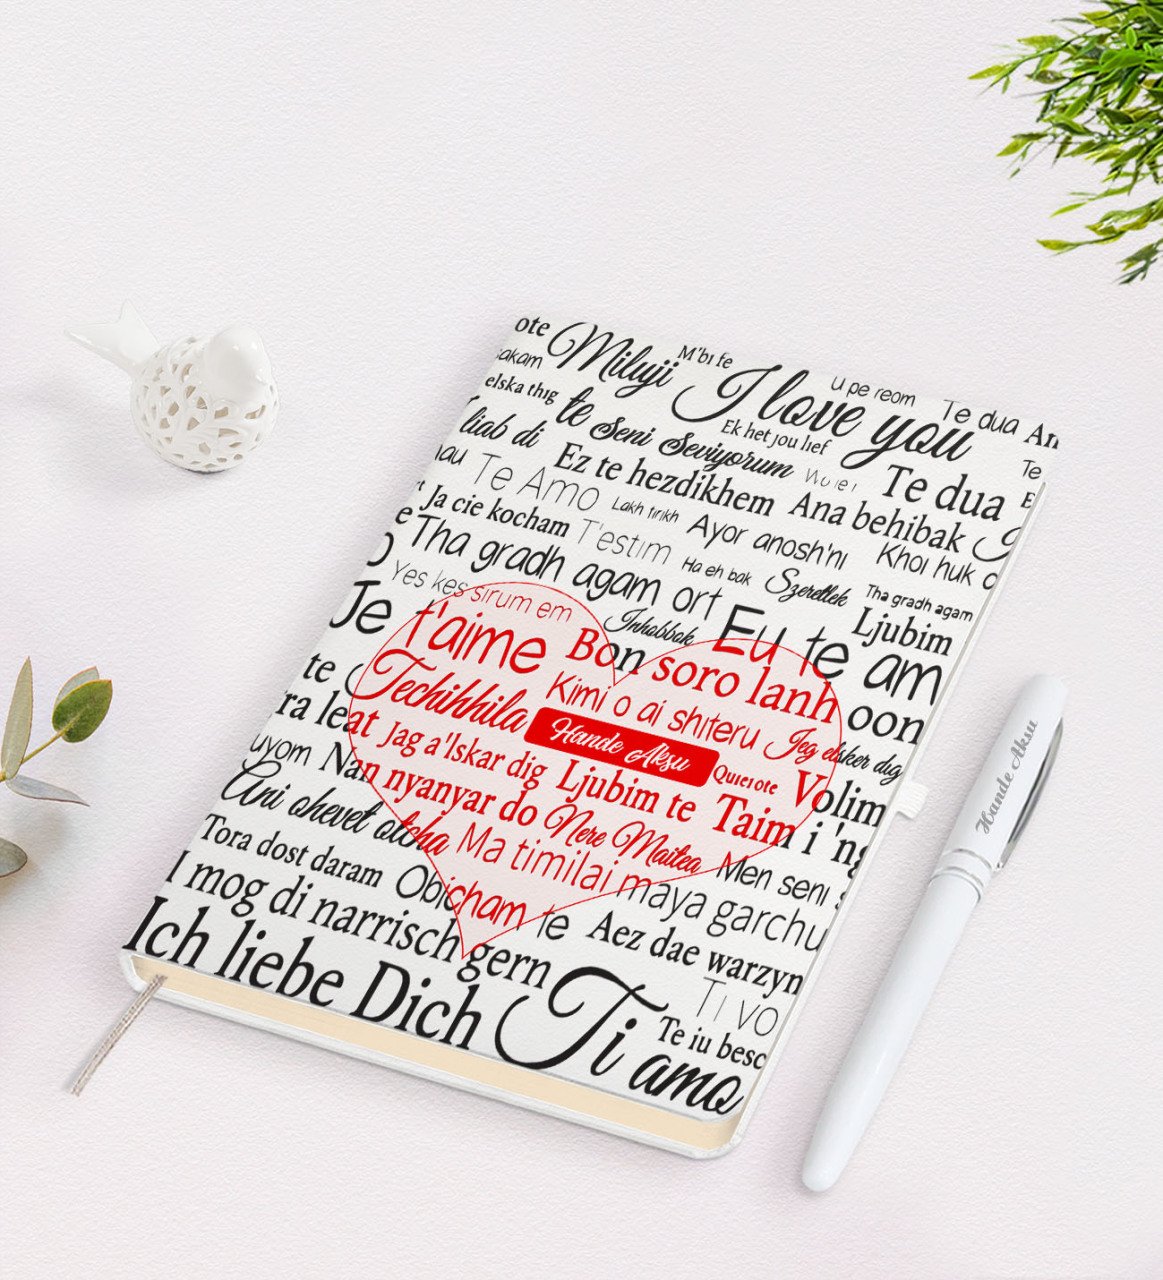 ote Miluji M'bi fe I love you U pe reom Te dua An
akam
elska thig te Seni Seviyorum Ek het jou lief Te dua Te
liab di Ez te hezdikhem Ana behibak
au Te Amo Lakh tirikh Ayor anosh'ni Khoi huk
Ja cie kocham T'estim Ha eh bak Szeretlek Tha gradh agam
e Tha gradh agam ort Ljubim
Yes kes sirum em Inhobbok Eu te am
Je t'aime Bon soro lanh oon
te Techihhila Kimi o ai shiteru Jeg elsker dig
Hande Aksu
ra leat Jag a'lskar dig Quierote Volim
uyom Nan nyanyar do Ljubim te Taim i 'ng
Ani ohevet otcha Nere Maitea Men seni
Tora dost daram Ma timilai maya garchu
I mog di narrisch gern Obicham te Aez dae warzyn
Ich liebe Dich Ti amo Te iu besc Ti vo
Hande Aksu